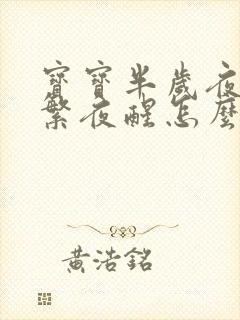 寶寶半歲夜
繁夜醒怎麼
黃浩銘